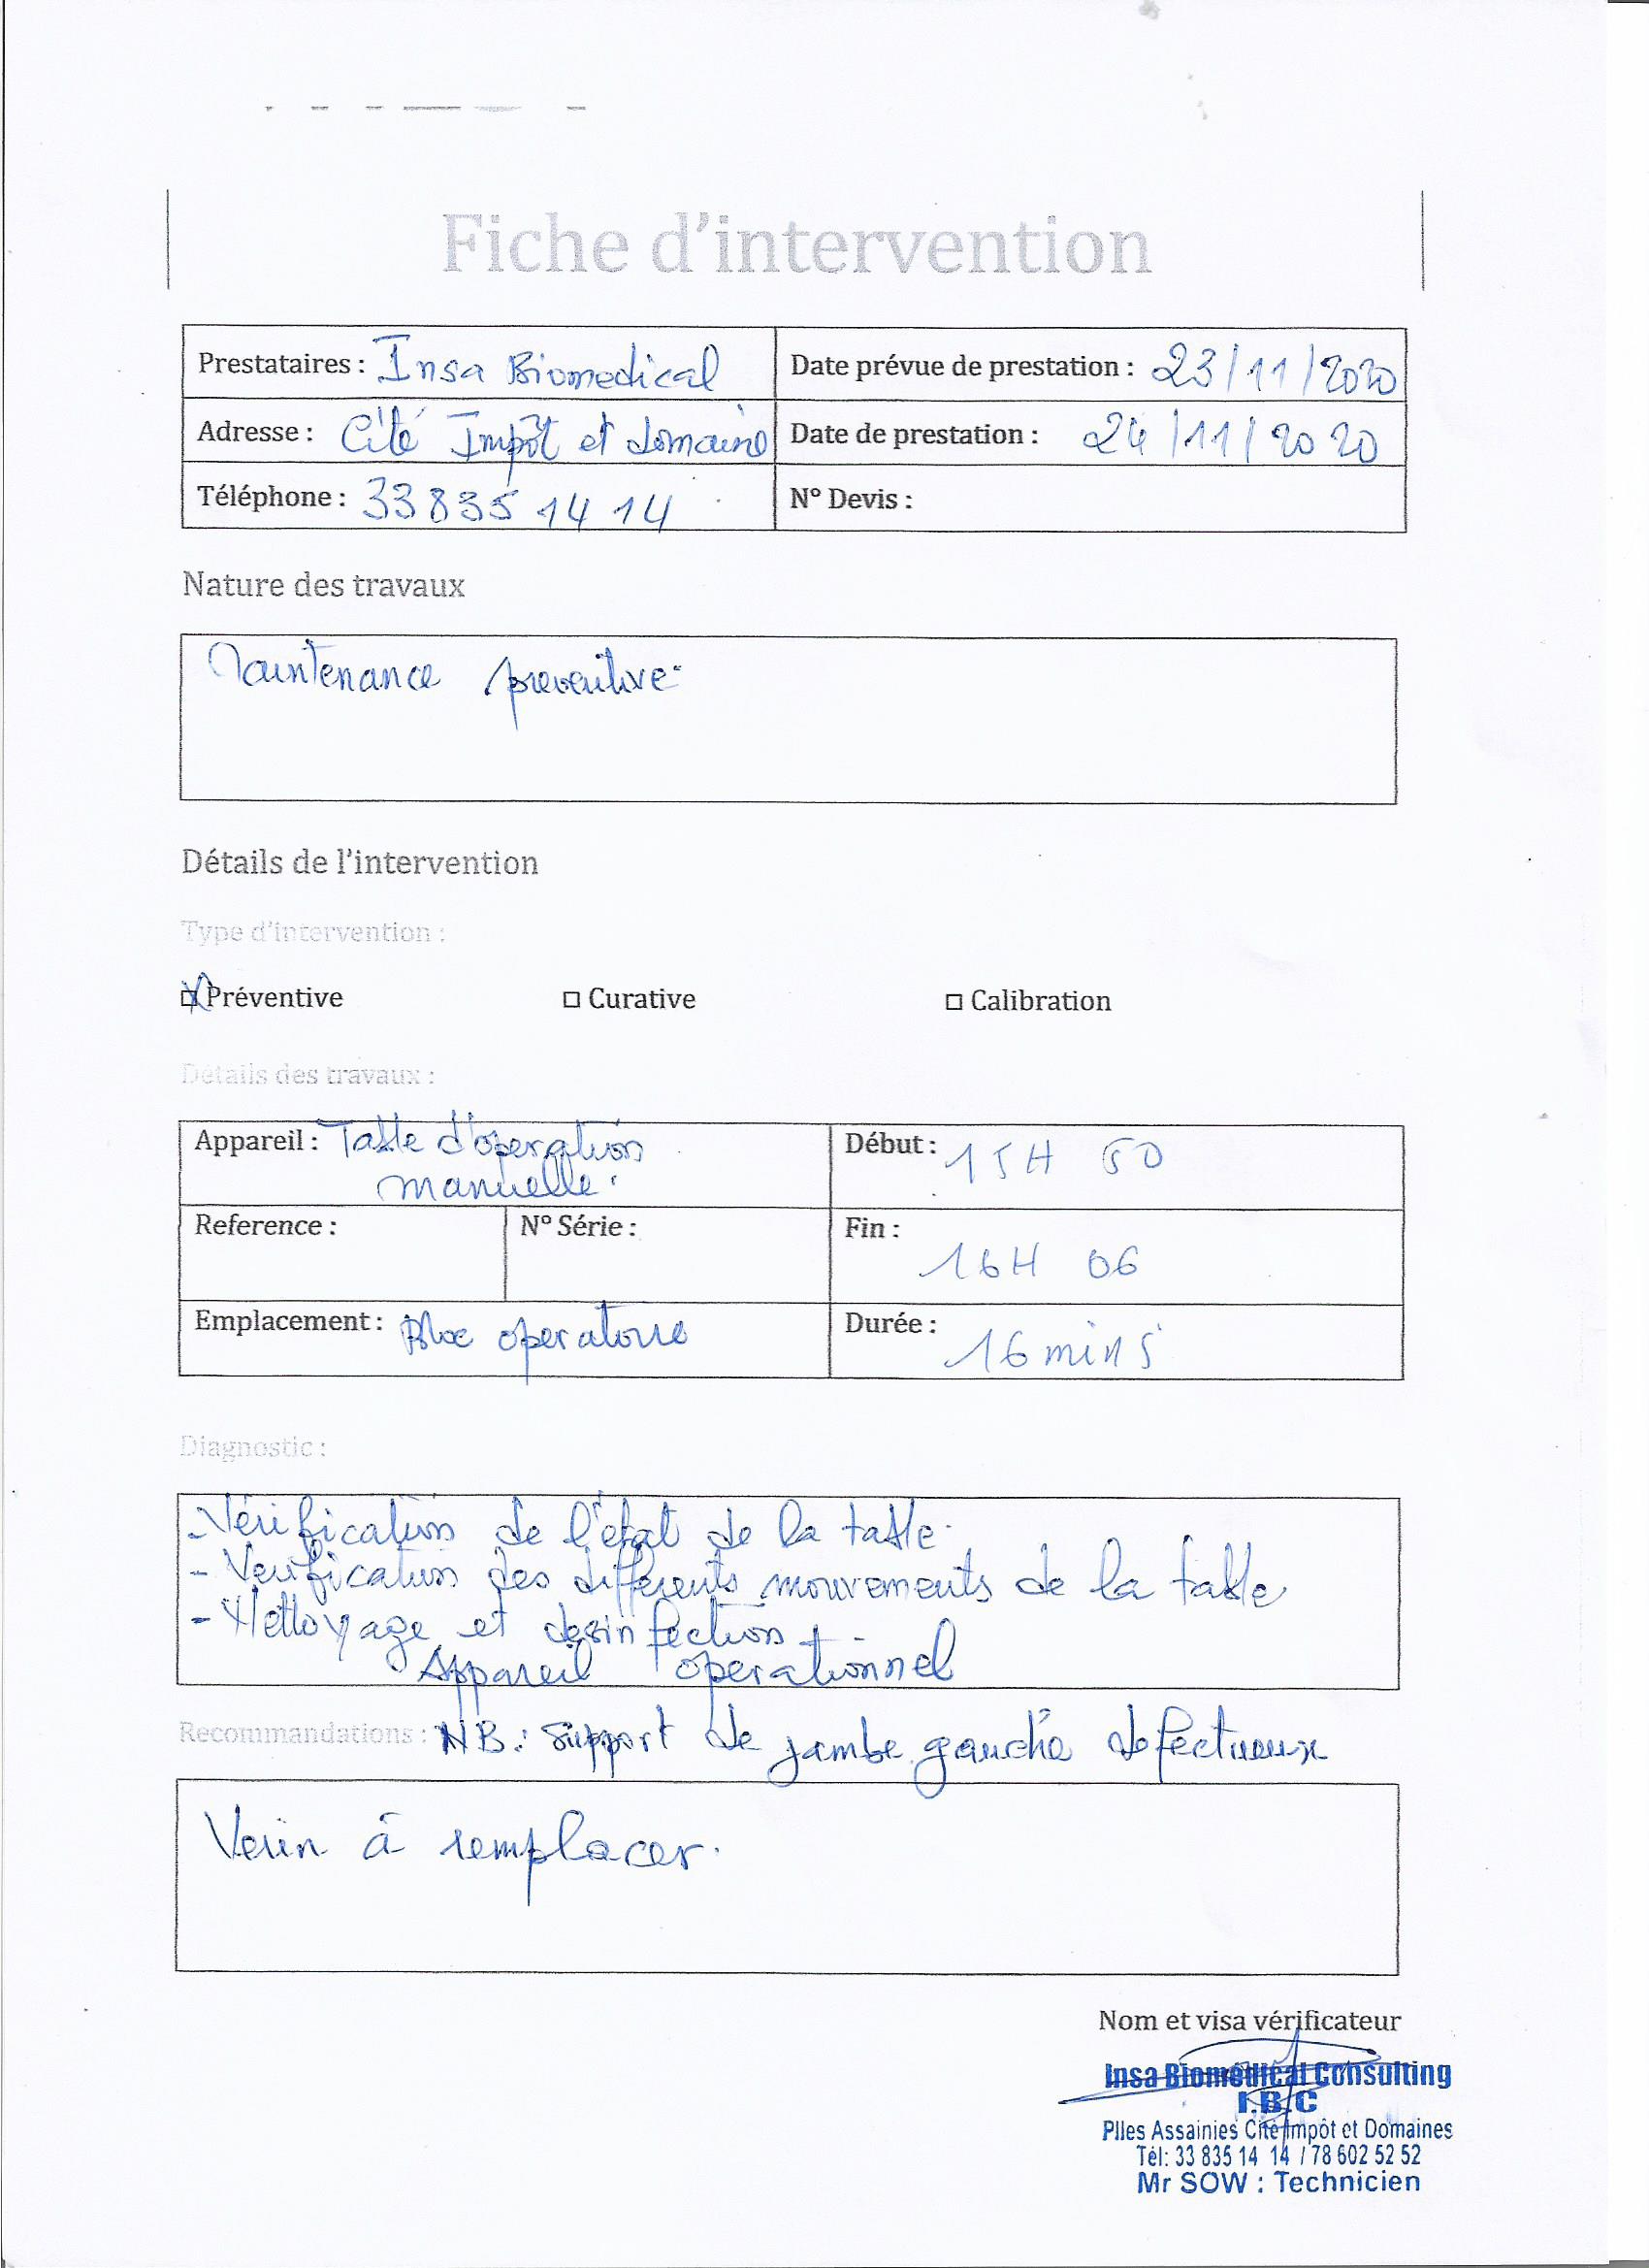 Fiche d'intervention
Prestataires : Insa Biomedical
Date prévue de prestation : 23/11/2020
Adresse : Cité Impôt et domaine
Date de prestation : 24/11/2020
Téléphone : 33 835 14 14
N° Devis :
Nature des travaux
Maintenance preventive
Détails de l'intervention
Type d'intervention :
Préventive
Curative
Calibration
Détails des travaux :
Appareil : Table d'operation
manuelle.
Début : 15H 50
Reference :
N° Série :
Fin :
16H 06
Emplacement : Bloc operatoire
Durée : 16 mins
Diagnostic :
- Verification de l'état de la table.
- Verification des différents mouvements de la table
- Nettoyage et desinfection
Appareil operationnel
Recommandations : NB: Support de jambe gauche defectueux
Verin à remplacer.
Nom et visa vérificateur
Insa Biomédical Consulting
I.B.C
Plles Assainies Cité Impôt et Domaines
Tél: 33 835 14 14 / 78 602 52 52
Mr SOW : Technicien